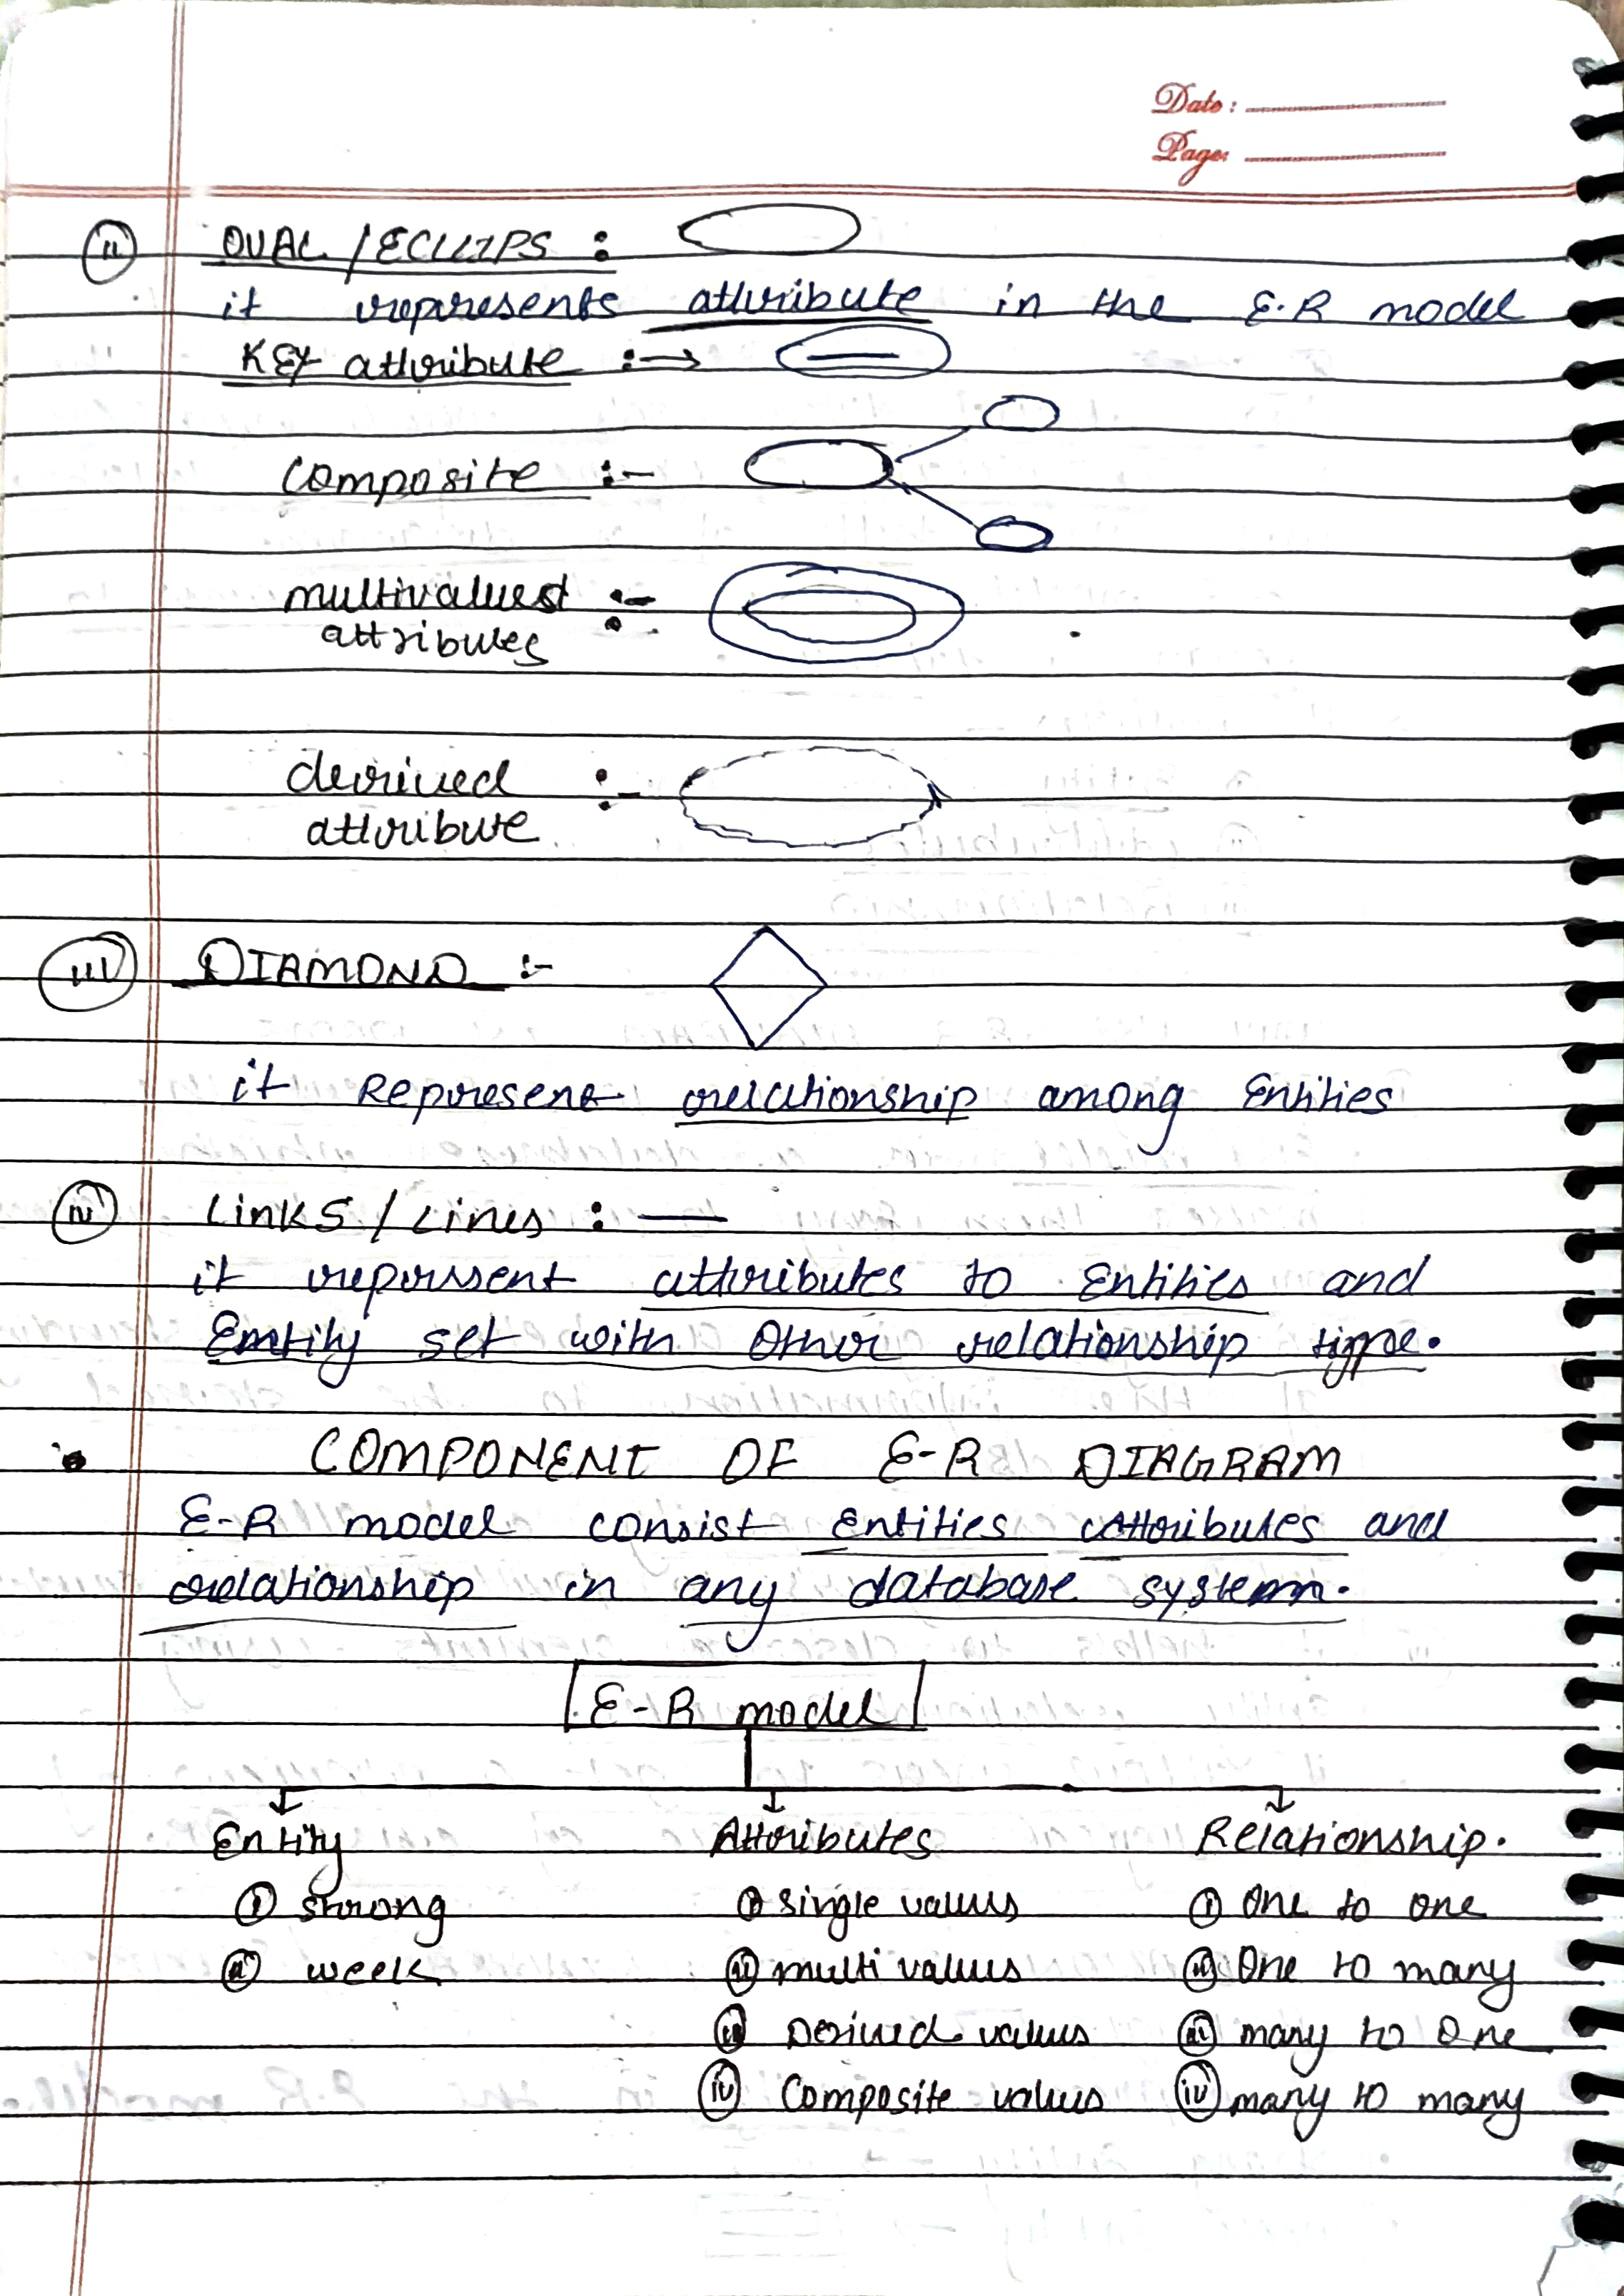 Date :
Page:
(ii) OVAL / ECLLIPS :
it represents attribute in the E.R model
KEY attribute :→
Composite :-
multivalued :-
attributes
derived :-
attribute
(iii) DIAMOND :-
it Represent relationship among Entities
(iv) Links / Lines : —
it represent attributes to Entities and
Entity set with other relationship type.
• COMPONENT OF E-R DIAGRAM
E-R model consist Entities Attributes and
relationship in any database system.
E-R model
Entity Attributes Relationship.
(i) strong (i) single values (i) One to one
(ii) week (ii) multi values (ii) One to many
(iii) Derived values (iii) many to One
(iv) Composite values (iv) many to many